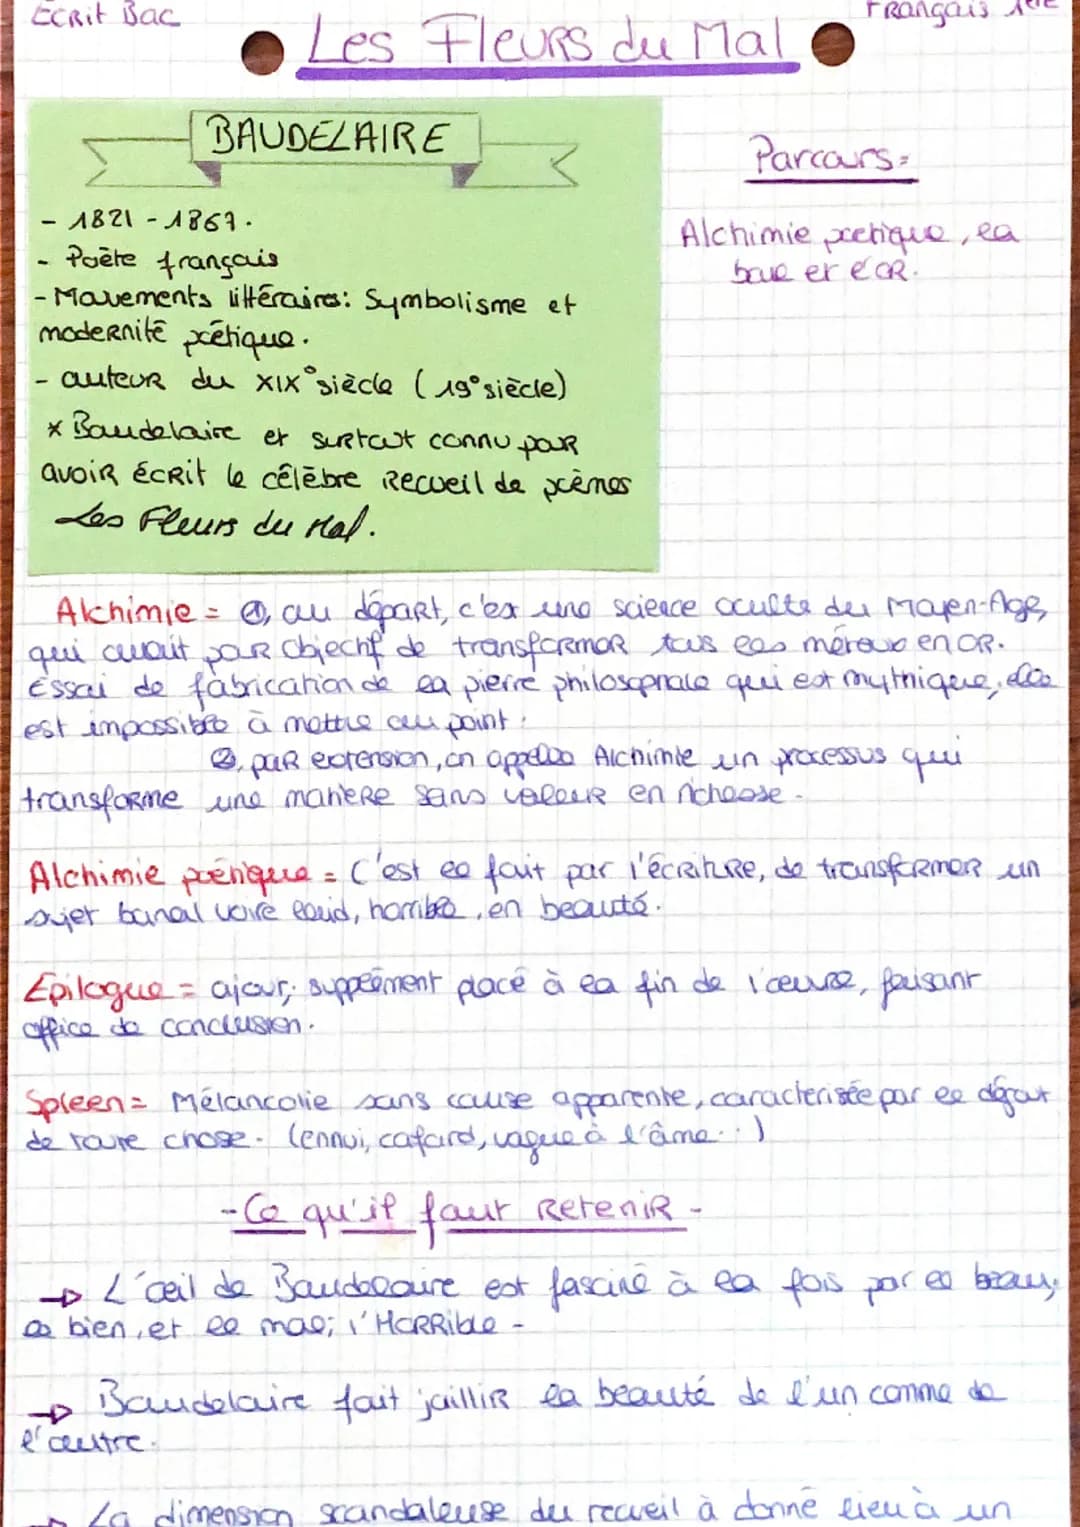 Ecrit Bac
Français 1ère
Les Fleurs du Mal
BAUDELAIRE
- 1821 - 1867.
- Poète français
- Mouvements littéraires: Symbolisme et
modernité poétique.
- auteur du XIX° siècle (19° siècle)
* Baudelaire et surtout connu pour
avoir écrit le célèbre recueil de poèmes
Les Fleurs du Mal.
Parcours:
Alchimie poétique, la
boue et l'or.
Alchimie = ①, au départ, c'est une science occulte du Moyen-Age,
qui avait pour objectif de transformer tous les métaux en or.
Essai de fabrication de la pierre philosophale qui est mythique, elle
est impossible à mettre au point.
②, par extension, on appelle Alchimie un processus qui
transforme une matière sans valeur en richesse.
Alchimie poétique = C'est le fait par l'écriture, de transformer un
sujet banal voire laid, horrible, en beauté.
Epilogue = ajout; supplément placé à la fin de l'œuvre, faisant
office de conclusion.
Spleen = Mélancolie sans cause apparente, caractérisée par le dégout
de toute chose. (ennui, cafard, vague à l'âme...)
- Ce qu'il faut retenir -
→ L'œil de Baudelaire est fasciné à la fois par le beau,
le bien, et le mal; l'Horrible -
→ Baudelaire fait jaillir la beauté de l'un comme de
l'autre.
→ La dimension scandaleuse du recueil à donné lieu à un